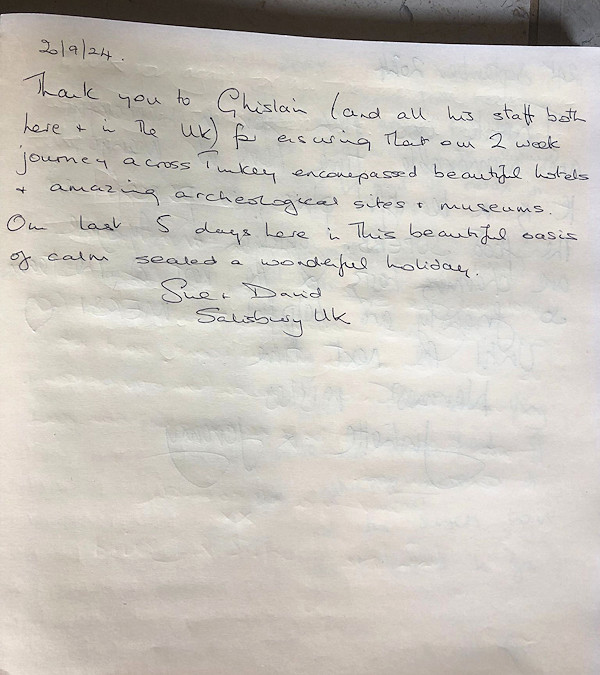 20/9/24.
Thank you to Ghislain (and all his staff both
here + in the UK) for ensuring that our 2 week
journey across Turkey encompassed beautiful hotels
+ amazing archeological sites + museums.
Our last 5 days here in this beautiful oasis
of calm sealed a wonderful holiday.
Sue + David
Salisbury UK